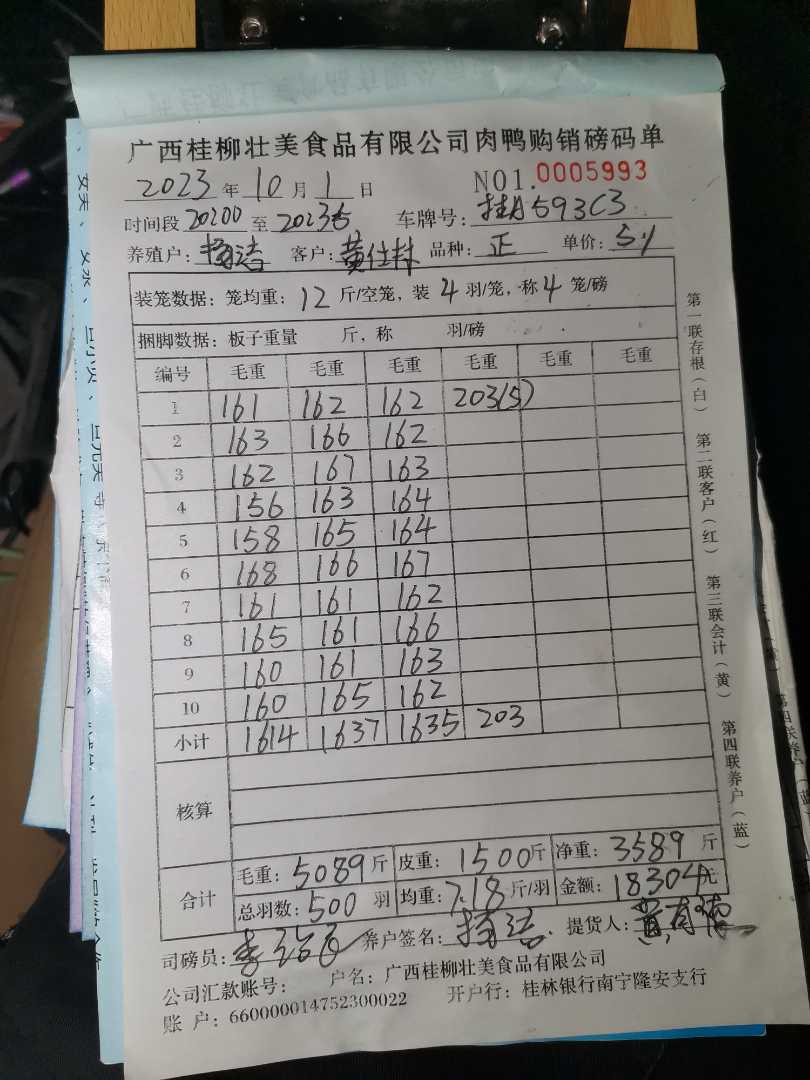 广西桂柳壮美食品有限公司肉鸭购销磅码单
2023 年 10 月 1 日 NO1.0005993
时间段 20200 至 20235 车牌号: 桂A593C3
养殖户: 杨洁 客户: 黄仕林 品种: 正 单价: 5.1
装笼数据: 笼均重: 12 斤/空笼, 装 4 羽/笼, 称 4 笼/磅
捆脚数据: 板子重量 斤, 称 羽/磅
编号 毛重 毛重 毛重 毛重 毛重 毛重
1 161 162 162 203(5)
2 163 166 162
3 162 167 163
4 156 163 164
5 158 165 164
6 168 166 167
7 161 161 162
8 165 161 166
9 160 161 163
10 160 165 162
小计 1614 1637 1635 203
核算
合计 毛重: 5089 斤 皮重: 1500 斤 净重: 3589 斤
总羽数: 500 羽 均重: 7.18 斤/羽 金额: 18304 元
司磅员: 养户签名: 杨洁 提货人:
公司汇款账号: 户名: 广西桂柳壮美食品有限公司
账 户: 660000014752300022 开户行: 桂林银行南宁隆安支行
第一联存根(白) 第二联客户(红) 第三联会计(黄) 第四联养户(蓝)